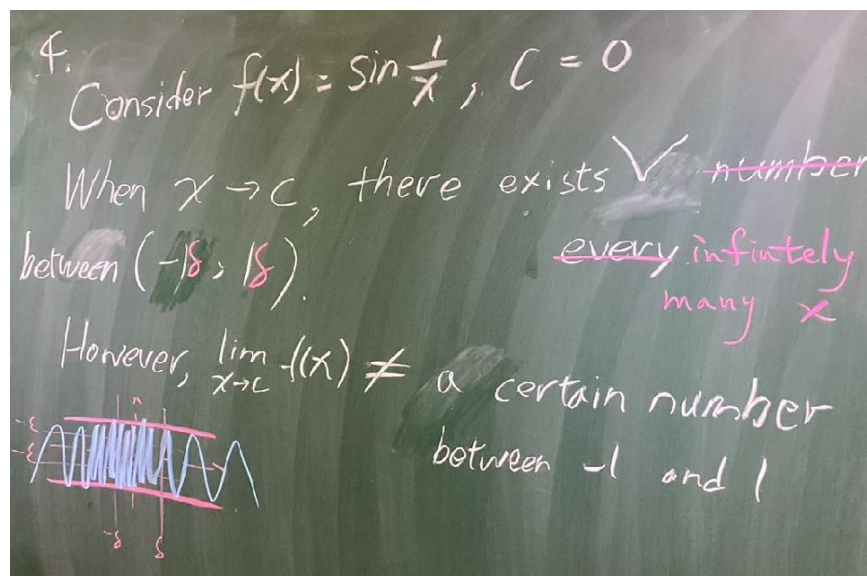 4.
Consider f(x) = sin 1/x, C = 0
When x → c, there exists ∨ number
every infintely
between (-1δ, 1δ).
many x
However, lim x→c f(x) ≠ a certain number
between -1 and 1
-ε
-ε
-δ δ